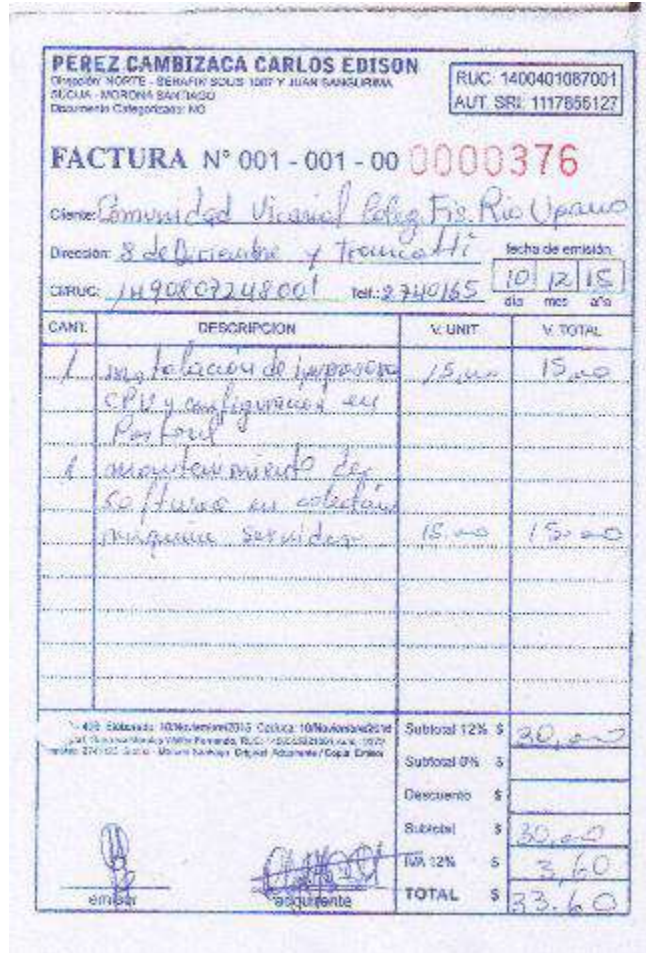 PEREZ CAMBIZACA CARLOS EDISON
Dirección: NORTE - SERAFIN SOLIS 1007 Y JUAN SANGURIMA
SUCUA - MORONA SANTIAGO
Documento Categorizado: NO
RUC: 1400401087001
AUT. SRI: 1117856127
FACTURA N° 001 - 001 - 00 0000376
Cliente: Comunidad Vicarial Coleg. Fis. Rio Upano
Dirección: 8 de Diciembre y
fecha de emisión
CI/RUC: 1490807248001 Telf.: 2740165
10 12 15
día mes año
CANT. DESCRIPCION V. UNIT V. TOTAL
1 instalación de impresora 15,00 15,00
CPU y configuracion en
1 mantenimiento de
software en
maquina servidor 15.00 15.00
Elaborado: 10/Noviembre/2015 Caduca: 10/Noviembre/2016
Original: Adquirente / Copia: Emisor
Subtotal 12% $ 30,00
Subtotal 0% $
Descuento $
Subtotal $ 30,00
IVA 12% $ 3,60
TOTAL $ 33.60
emisor adquirente